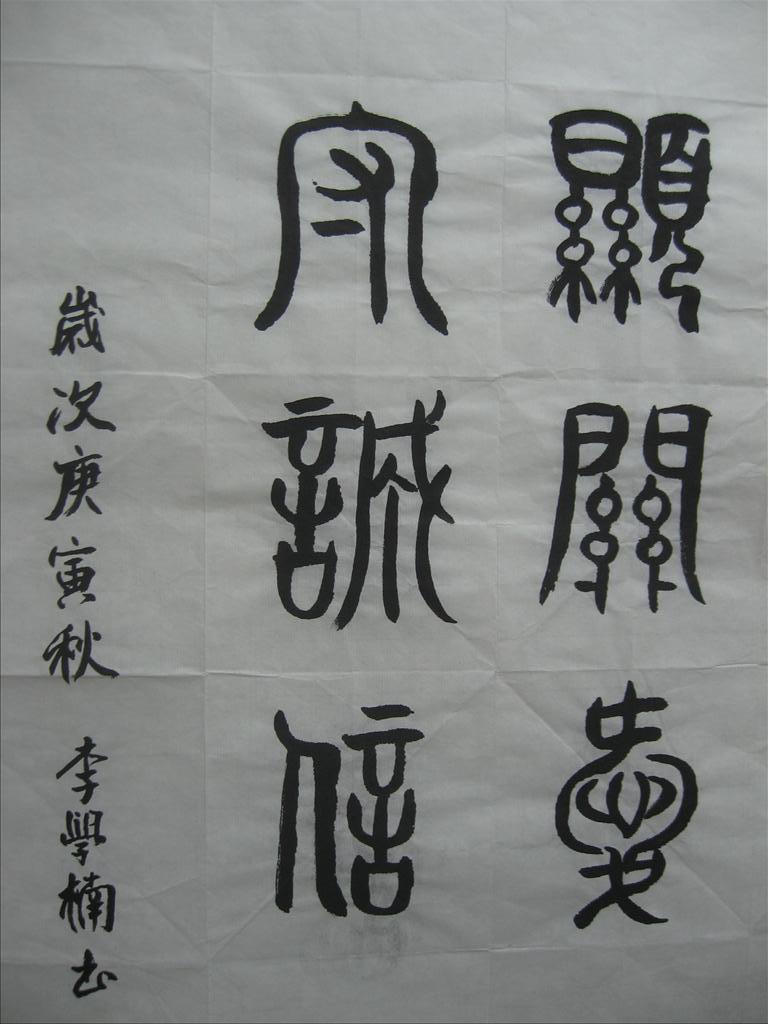 顯關愛
守誠信
歲次庚寅秋 李學楠书